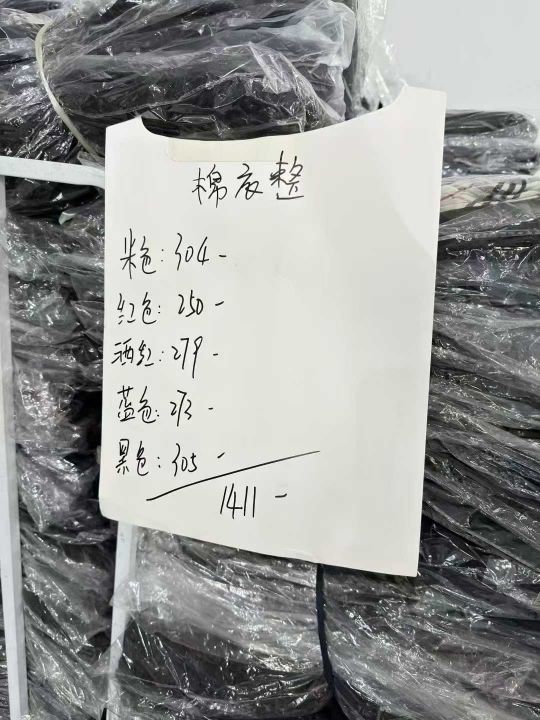 棉衣整
米色:304-
红色:250-
酒红:279-
蓝色:273-
黑色:305-
1411-